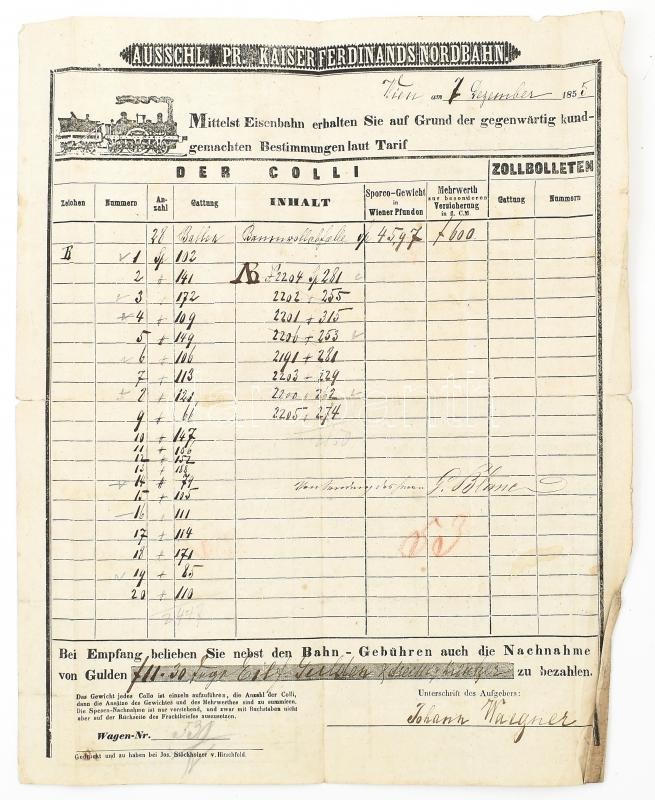 AUSSCHL. PR. KAISER FERDINANDS NORDBAHN.
Wien am 7 Dezember 1855
Mittelst Eisenbahn erhalten Sie auf Grund der gegenwärtig kund-
gemachten Bestimmungen laut Tarif
DER COLLI ZOLLBOLLETEN
Zeichen Nummern An-zahl Gattung INHALT Sporco-Gewicht in Wiener Pfunden Mehrwerth zur besonderen Versicherung in fl. C.M. Gattung Nummern
28 Ballen Baumwollabfälle 4597 f 600
B 1 102
2 141 2204 281
3 172 2202 255
4 109 2201 315
5 149 2206 253
6 106 2191 281
7 113 2203 229
8 121 2200 262
9 66 2205 274
10 147
11 156
12 152
13
14 79
15
16 111
17 114
18 171
19 85
20 110
G. Blanc
53
Bei Empfang belieben Sie nebst den Bahn-Gebühren auch die Nachnahme
von Gulden f 11.30 Eilf Gulden zu bezahlen.
Das Gewicht jedes Collo ist einzeln aufzuführen, die Anzahl der Colli,
dann die Ansätze des Gewichtes und des Mehrwerthes sind zu summiren.
Die Spesen-Nachnahme ist nur vorstehend, und zwar mit Buchstaben nicht
aber auf der Rückseite des Frachtbriefes auszusetzen.
Unterschrift des Aufgebers:
Johann Waegner
Wagen-Nr.
Gedruckt und zu haben bei Jos. Stöckholzer v. Hirschfeld.